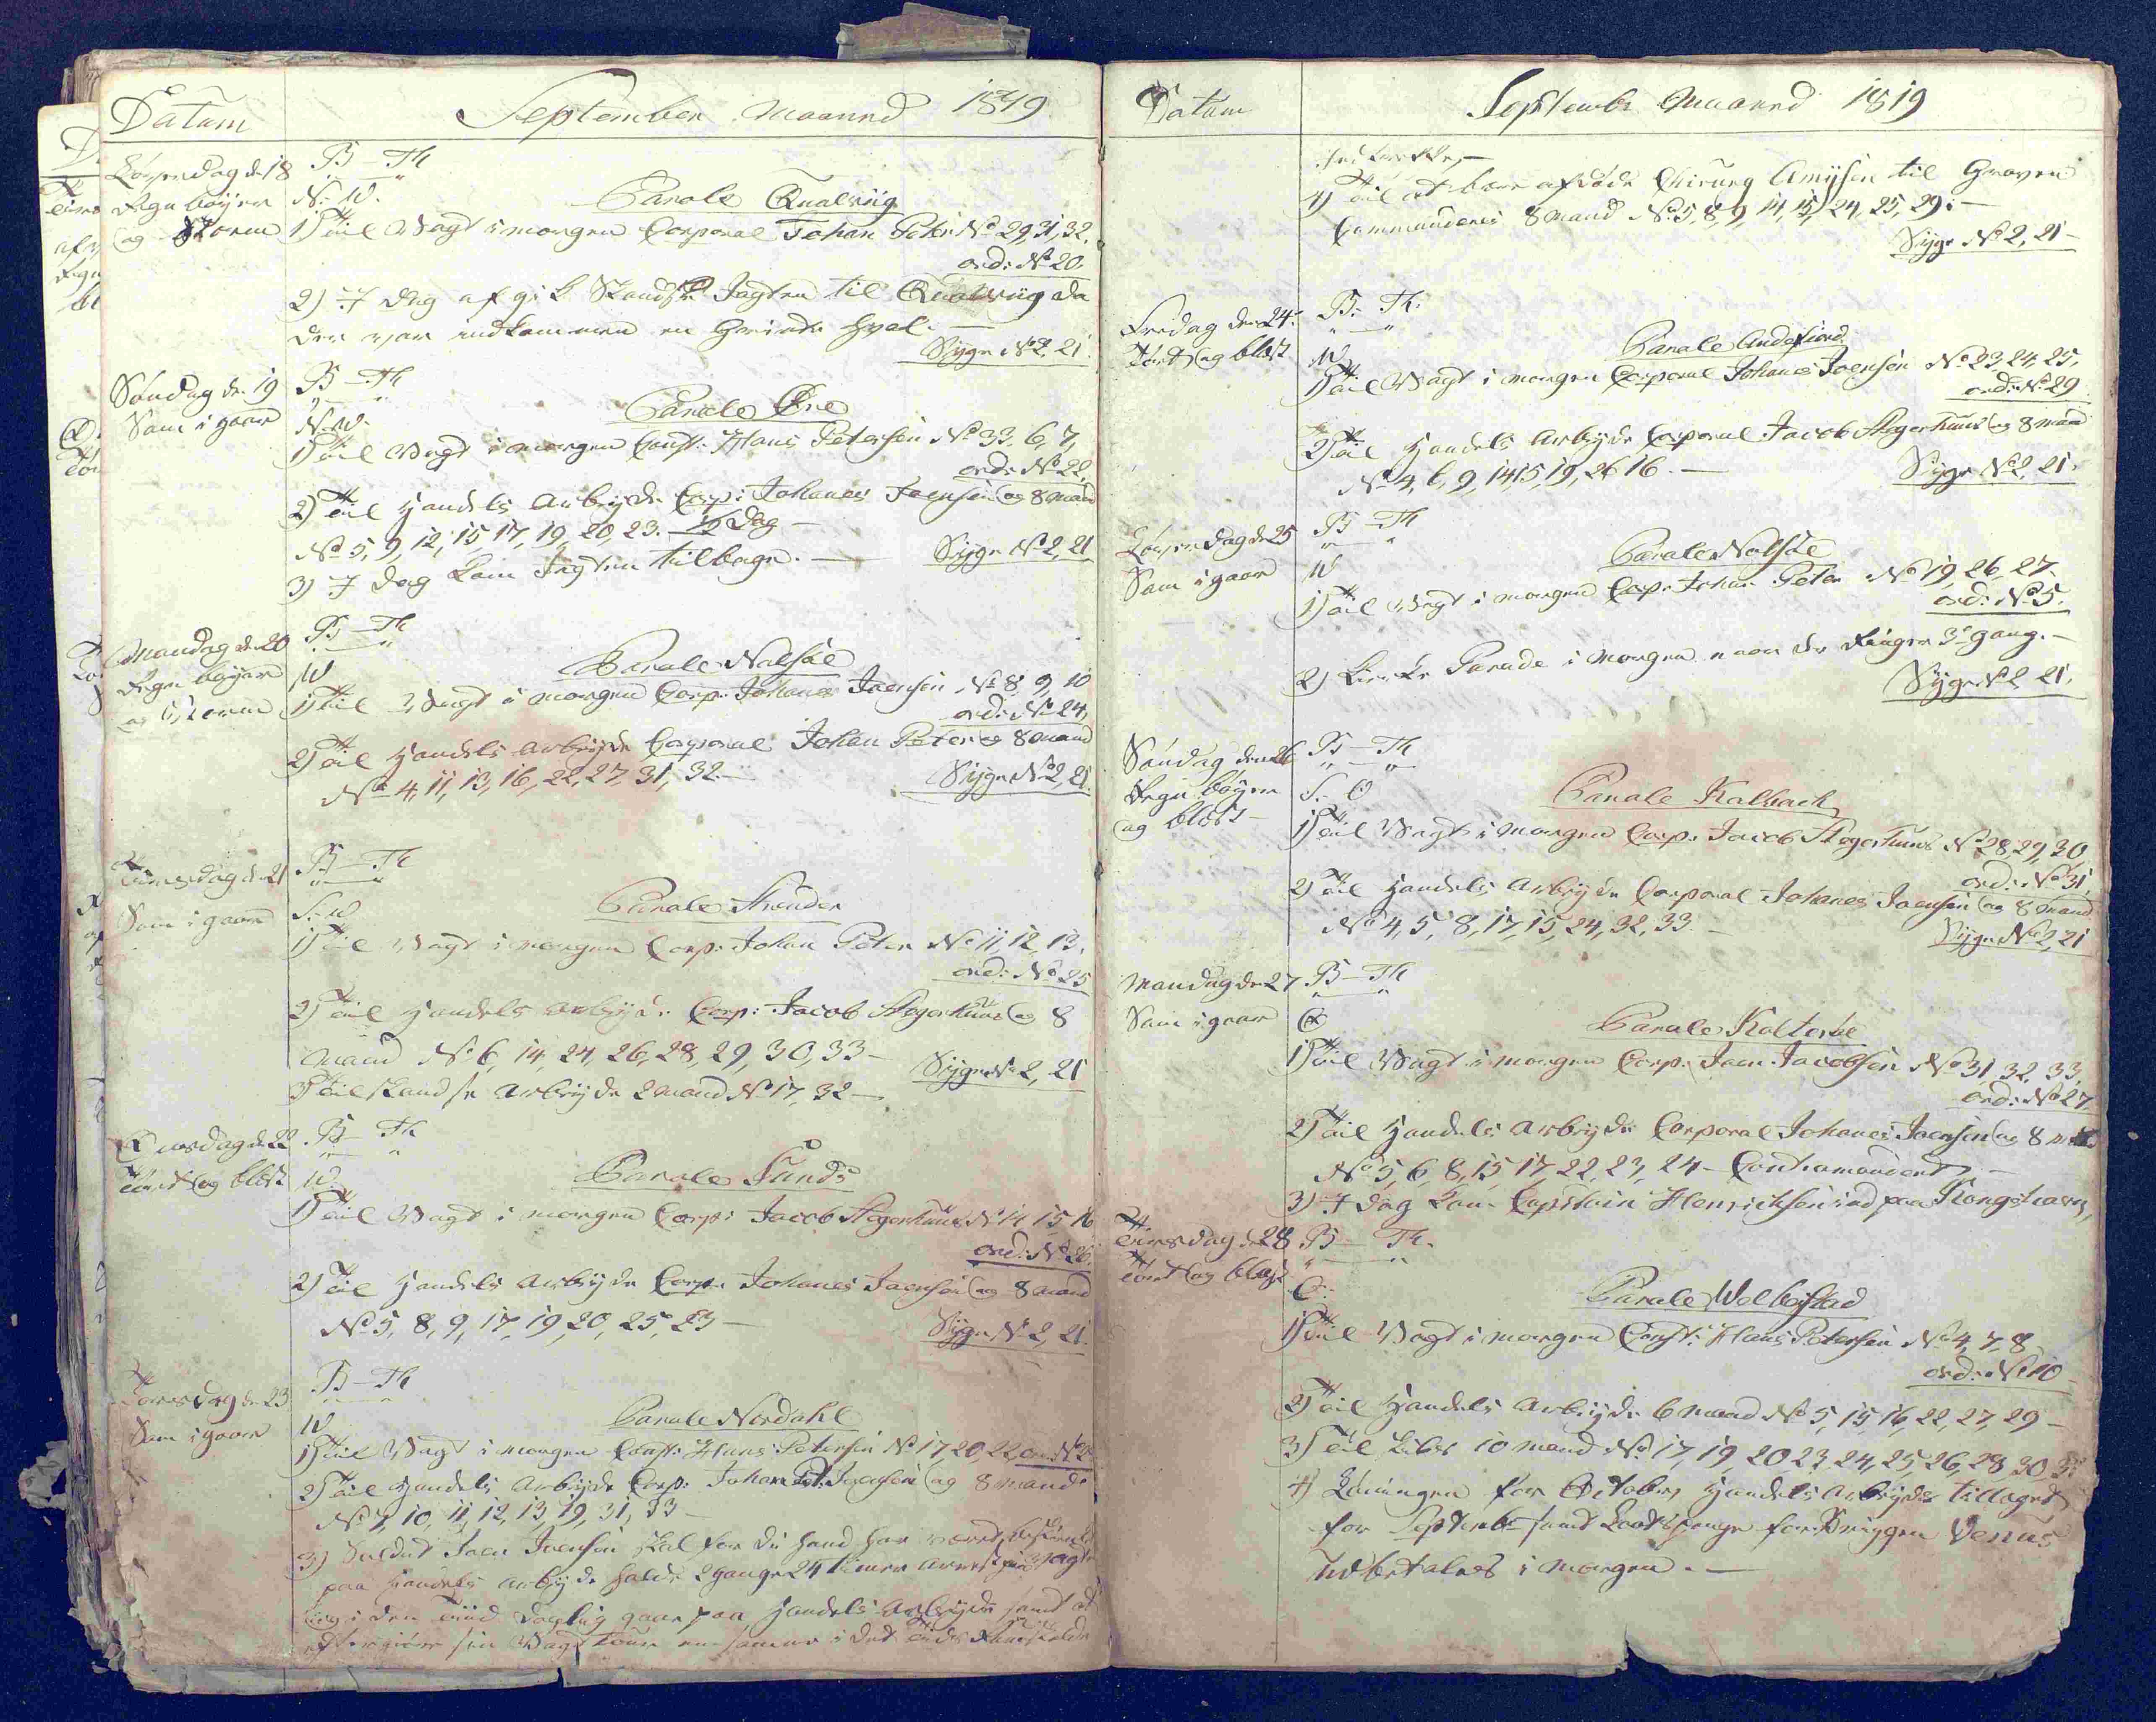 Datum
September Maaned 1819
Løverdag d: 18
Regn bøyer
og Storm
B - Th
N: W.
Parole Qualviig
1) Til Wagt i morgen Corporal Johan Peter No 29, 31, 32.
ord: No 20.
2) I dag afgik Skandse Jagten til Qualviig da
der var indkommen en Grinde Hval. —
Syge No 2, 21.
Søndag de 19
Som i gaar
B - Th
N. W.
Parole Øre
1) Til Wagt i morgen Const: Hans Petersen No 33, 6, 7,
ord: No 22,
2) Til Handels Arbeyde Corp: Johanes Joensen og 8 mand
No 5, 9, 12, 15, 17, 19, 20, 23. — 1/2 Dag —
3) I dag kom Jagten tilbage. —
Syge No 2, 21
Mandag de 20
Regn bøyer
og Storm
B - Th
W
Parole Nolsøe
1) Til Wagt i morgen Corp: Johanes Joensen No 8, 9, 10
ord: No 24,
2) Til Handels Arbeyde Corporal Johan Peter og 8 mand
No 4, 11, 13, 16, 22, 27, 31, 32. —
Syge No 2, 21.
Tirsdag de 21
Som i gaar
B - Th
S. W
Parole Skuder
1) Til Wagt i morgen Corp: Johan Peter No 11, 12, 13.
ord: No 25
2) Til Handels Arbeyde Corp: Jacob Skogerhuus og 8
mand No 6, 14, 24, 26, 28, 29, 30, 33 —
Syge No 2, 21
3) Til Skandse Arbeyde 2 mand No 17, 32 —
Onsdag de 22
Tört og blæst
B - Th
W
Parole Sund
1) Til Wagt i morgen Corp: Jacob Skogerhuus No 14 15 16
ord: No 26.
2) Til Handels Arbeyde Corp: Johanes Joensen og 8 mand
No 5, 8, 9, 17, 19, 20, 25, 23 —
Syge No 2, 21.
Torsdag de 23
Som i gaar
B - Th
W
Parole Nordahl
1) Til Wagt i morgen Const: Hans Petersen No 17, 20, 22, ord: No
2) Til Handels Arbeyde Corp: Johanes Joensen og 8 mand
No 7, 10, 11, 12, 13, 19, 31, 33 —
3) Soldat Joen Joensen skal for di hand har været
paa Handels Arbeyde holde 2 gange 24 timer Arrest paa
i den Tiid daglig gaar paa Handels Arbeyde samt at
sin Wagt
Datum
Septembr Maaned 1819
4) Til at bære afdøde Chirurg Amysen til Graven
Commanderes 8 mand No 5, 8, 9, 14, 15, 24, 25, 29. —
Syge No 2, 21 —
Fredag den 24.
Tört og blæst
B: Th:
W
Parole Andefiord
1) Til Wagt i morgen Corporal Johanes Joensen No 23, 24, 25,
ord: No 29
2) Til Handels Arbeyde Corporal Jacob Skogerhuus og 8 mand
No 4, 6, 9, 14, 15, 19, 26 16. —
Syge No 2, 21.
Løverdag de 25
Som i gaar
B - Th
W
Parole Nolsøe
1) Til Wagt i morgen Corp: Johan Peter No 19, 26, 27.
ord: No 5.
2) Kirke Parade i morgen naar der Ringes 3de gang. —
Syge No 2, 21.
Søndag den 26
Regn bøyer
og blæst —
B - Th
S. O
Parole Kalbach
1) Til Wagt i morgen Corp: Jacob Skogerhuus No 28, 29, 30,
ord: No 31.
2) Til Handels Arbeyde Corporal Johanes Joensen og 8 mand
No 4, 5, 8, 17, 15, 24, 32, 33. —
Syge No 2, 21
Mandag de 27
Som i gaar
B - Th
O
Parole Kolterøe
1) Til Wagt i morgen Corp: Joen Jacobsen No 31, 32, 33,
ord: No 27
2) Til Handels Arbeyde Corporal Johanes Joensen og 8
No 5, 6, 8, 15, 17, 22, 23, 24 — Contramandert —
3) I dag kom Capitain Henrichsen ind paa Kongshavn,
Tirsdag de 28
Tört og blæst
B - Th.
O:
Parole Welbestad
1) Til Wagt i morgen Const: Hans Petersen No 4, 7, 8,
ord: No 10 —
2) Til Handels Arbeyde 6 mand No 5, 15, 16, 22, 27, 29 —
3) Til 10 mand No 17, 19, 20 23, 24, 25, 26, 28 30
4) Lønningen for October, Handels Arbeyde tillæget
for Septembr samt Lootspenge for Briggen Venus
Udbetales i morgen. —